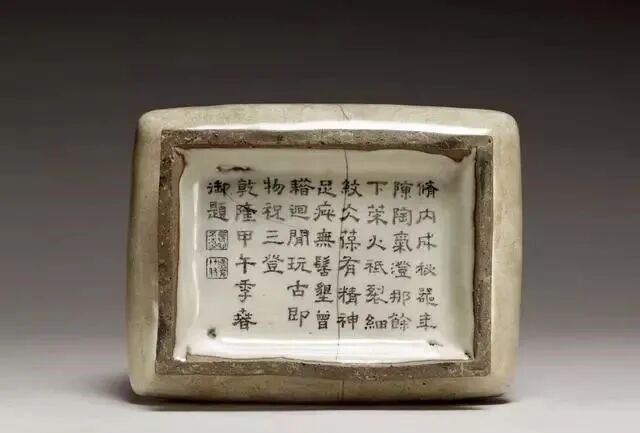 脩内成秘器年
陳陶氣澄那餘
下荣火祗裂細
紋仌葆有精神
足痏無髻墾曾
藉迴閒玩古即
物祝三登
乾隆甲午季春
御題